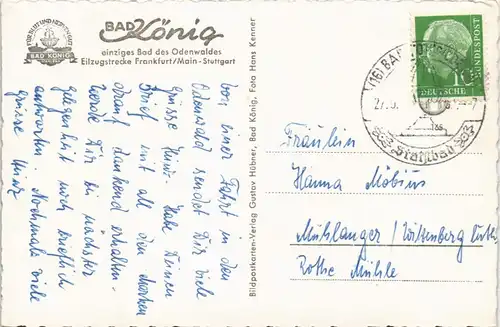 FÜR BLUT UND NERVEN GUT
BAD KÖNIG
BAD König
einziges Bad des Odenwaldes
Eilzugstrecke Frankfurt/Main - Stuttgart
Von einer Fahrt in den
Odenwald sendet Dir viele
Grüsse Heinz. Habe Deinen
Brief mit all den Marken
darauf dankend erhalten.
Werde Dir bei nächster
Gelegenheit auch brieflich
antworten. Nochmals viele
Grüsse Heinz
Bildpostkarten-Verlag Gustav Hübner, Bad König, Foto Hans Kenner
DEUTSCHE
BUNDESPOST
10
(16) BAD
27.5.
Stahlbad
Fräulein
Hanna Möbius
Mühlanger / Wittenberg
Rothe Mühle